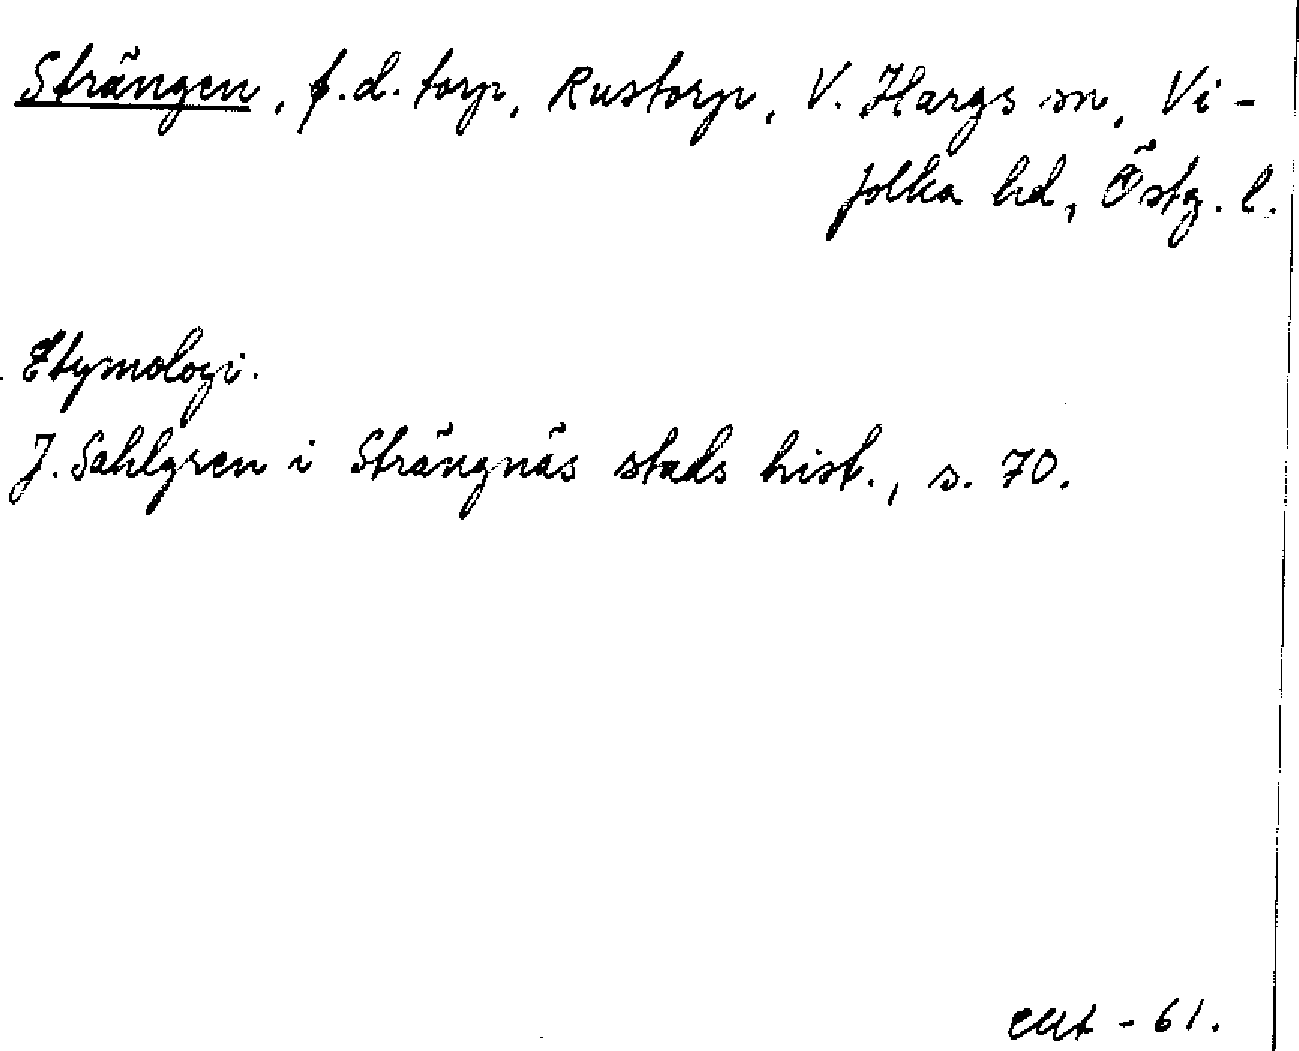 Strängen, f.d. torp, Rustorp, V. Hargs sn, Vi-
folka hd, Östg. l.
Etymologi.
J. Sahlgren i Strängnäs stads hist., s. 70.
- 61.